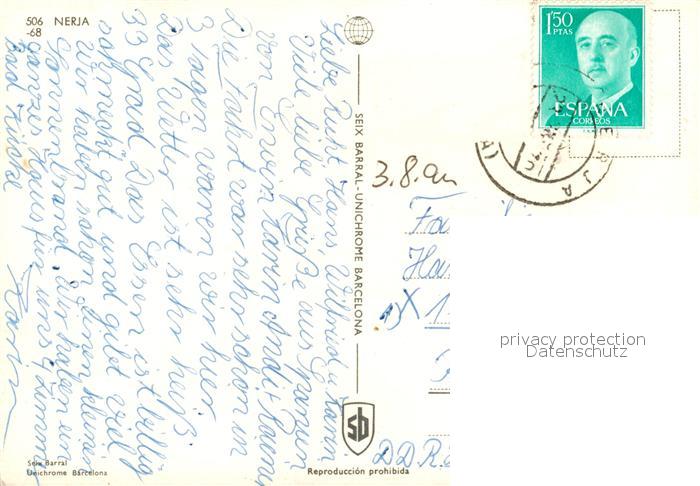 506 NERJA
-68
Liebe Ruht, Hans, Wilfried u. Karin
Viele liebe Grüße aus Spanien
von Erwin Karin Andi +
Die Fahrt war sehr schön in
3 Tagen waren wir hier
Das Wetter ist sehr heiß
33 Grad Das Essen ist billig
schmeckt gut und gibt viel
Wir haben schon einen kleinen
Sonnenbrand. Wir haben ein
ganzes Haus für uns 4 Zimmer
Bad Küche
Karin
Seix Barral
Unichrome Barcelona
SEIX BARRAL - UNICHROME BARCELONA
sb
Reproducción prohibida
1'50
PTAS
ESPAÑA
CORREOS
NERJA
3.8. an
Fa
Ha
X 1
DDR
privacy protection
Datenschutz